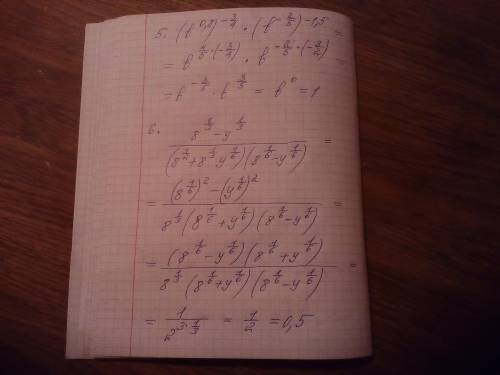 5. (b^{0,8})^{-\frac{3}{4}} · (b^{-\frac{2}{5}})^{-1,5} =
= b^{\frac{4}{5}·(-\frac{3}{4})} · b^{-\frac{2}{5}·(-\frac{3}{2})} =
= b^{-\frac{3}{5}} · b^{\frac{3}{5}} = b^0 = 1
6.
\frac{8^{\frac{1}{3}} - y^{\frac{1}{3}}}{(8^{\frac{1}{2}} + 8^{\frac{1}{3}} y^{\frac{1}{6}})(8^{\frac{1}{6}} - y^{\frac{1}{6}})} =
= \frac{(8^{\frac{1}{6}})^2 - (y^{\frac{1}{6}})^2}{8^{\frac{1}{3}}(8^{\frac{1}{6}} + y^{\frac{1}{6}})(8^{\frac{1}{6}} - y^{\frac{1}{6}})} =
= \frac{(8^{\frac{1}{6}} - y^{\frac{1}{6}})(8^{\frac{1}{6}} + y^{\frac{1}{6}})}{8^{\frac{1}{3}}(8^{\frac{1}{6}} + y^{\frac{1}{6}})(8^{\frac{1}{6}} - y^{\frac{1}{6}})} =
= \frac{1}{2^{3·\frac{1}{3}}} = \frac{1}{2} = 0,5